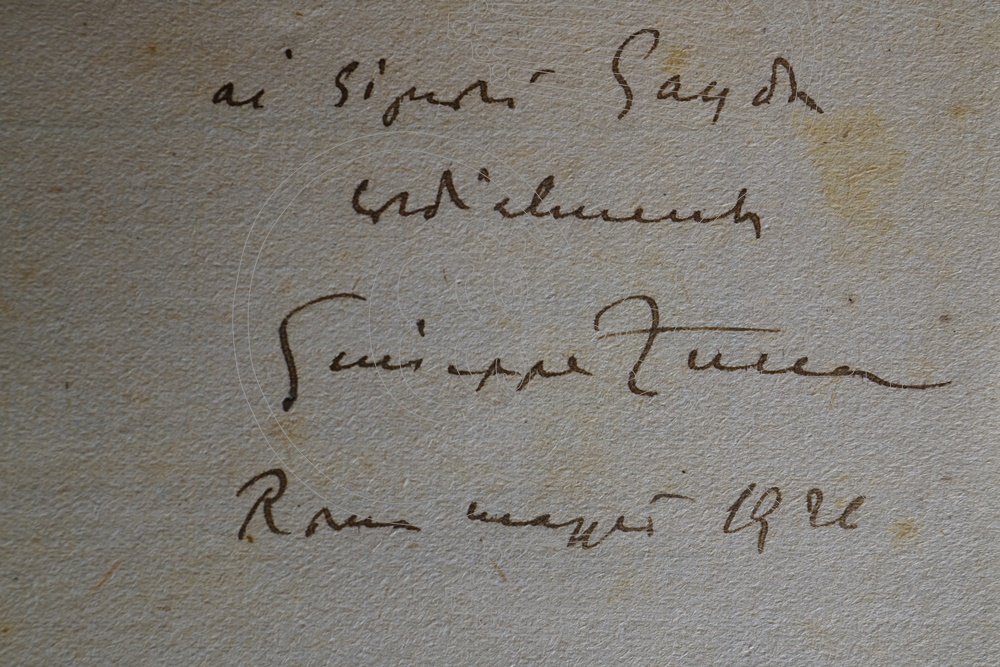 ai Signori Gayda
cordialmente
Giuseppe Zucca
Roma maggio 1921